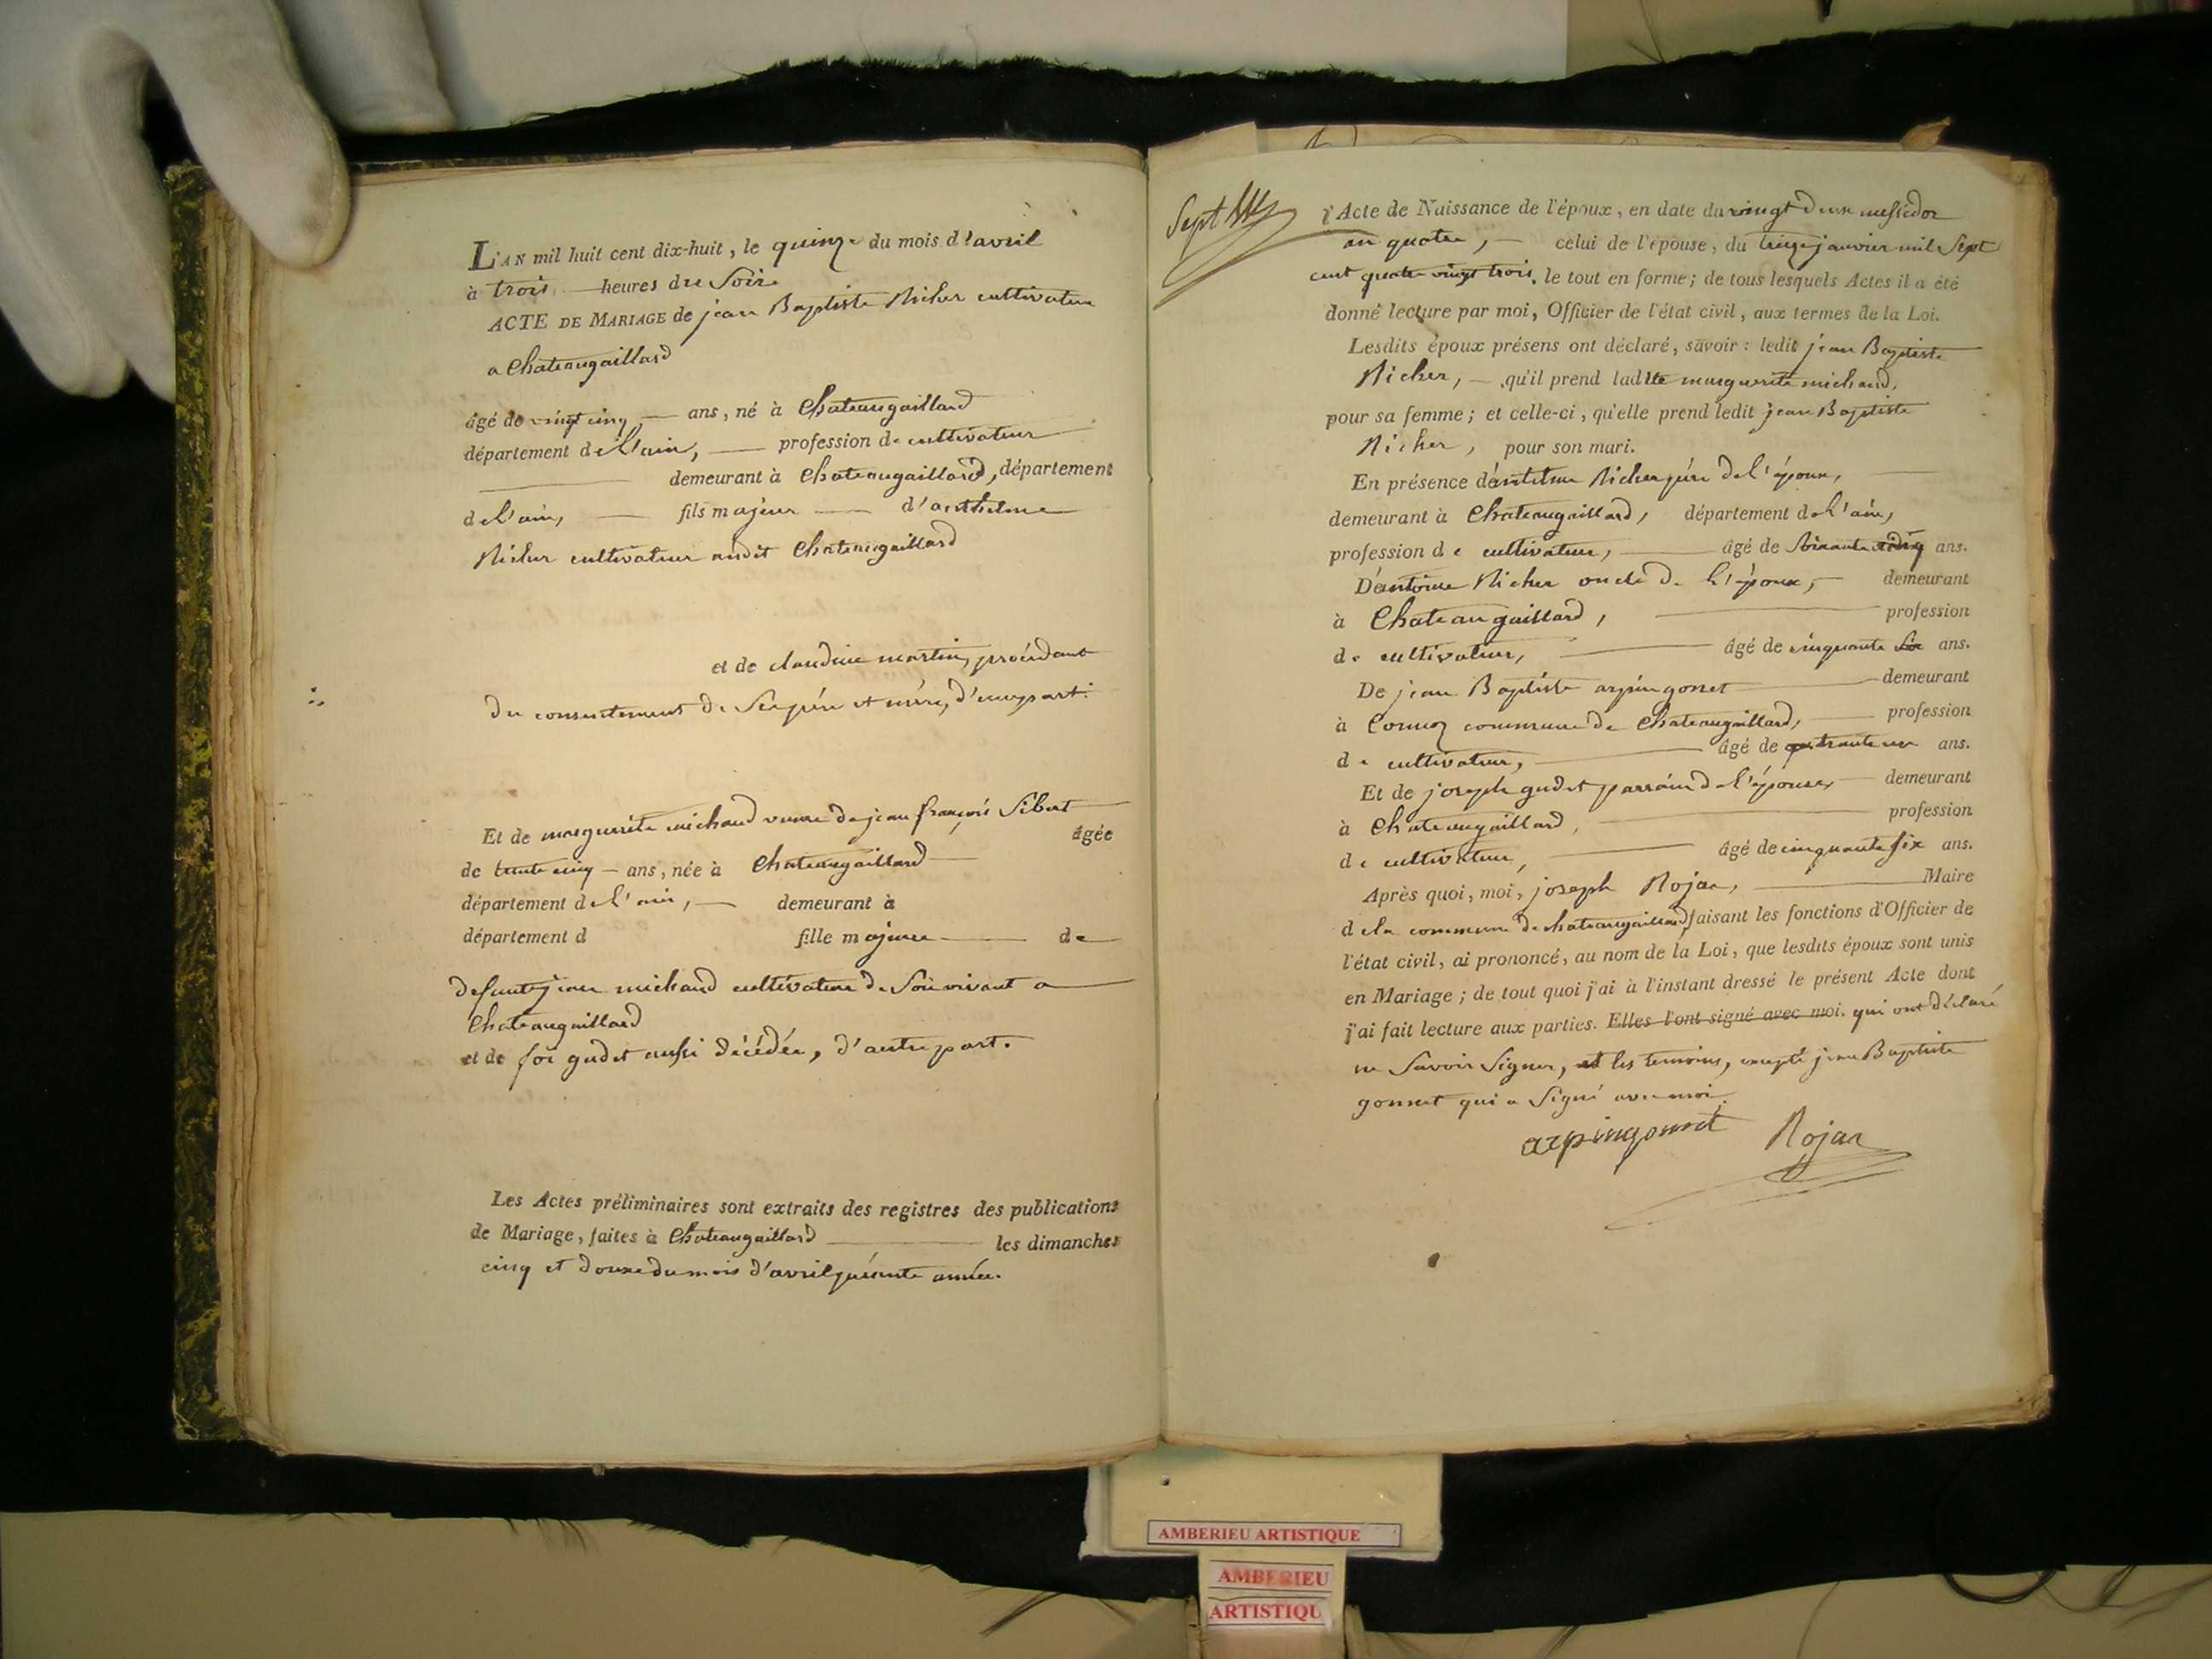 L'AN mil huit cent dix-huit, le quinze du mois d'avril
à trois heures du Soir
ACTE DE MARIAGE de jean Baptiste Richer cultivateur
a Chateaugaillard
âgé de vingt cinq ans, né à Chateaugaillard
département de l'ain, profession de cultivateur
demeurant à Chateaugaillard, département
de l'ain, fils majeur d'anthelme
Richer cultivateur audit Chateaugaillard
et de claudine martin, procédant
du consentement de Ses père et mère, d'une part.
Et de marguerite michaud veuve de jean françois Sibert
âgée
de trente cinq ans, née à Chateaugaillard
département de l'ain, demeurant à
département d fille majeure de
defunt jean michaud cultivateur de Son vivant a
Chateaugaillard
et de foi gudet aussi décédée, d'autre part.
Les Actes préliminaires sont extraits des registres des publications
de Mariage, faites à Chateaugaillard les dimanches
cinq et douze du mois d'avril présente année.
Sept
l'Acte de Naissance de l'époux, en date du vingt deux messidor
an quatre, celui de l'épouse, du treize janvier mil Sept
cent quatre vingt trois, le tout en forme; de tous lesquels Actes il a été
donné lecture par moi, Officier de l'état civil, aux termes de la Loi.
Lesdits époux présens ont déclaré, savoir: ledit jean Baptiste
Richer, qu'il prend ladite marguerite michaud,
pour sa femme; et celle-ci, qu'elle prend ledit jean Baptiste
Richer, pour son mari.
En présence d'antelme Richer père de l'époux,
demeurant à Chateaugaillard, département de l'ain,
profession de cultivateur, âgé de soixante ans.
D'antoine Richer oncle de l'époux, demeurant
à Chateaugaillard, profession
de cultivateur, âgé de cinquante Six ans.
De jean Baptiste arpin gonet demeurant
à Cormoz commune de Chateaugaillard, profession
de cultivateur, âgé de trente un ans.
Et de joseph gudet parrain de l'épouse, demeurant
à Chateaugaillard, profession
de cultivateur, âgé de cinquante six ans.
Après quoi, moi, joseph Rojar, Maire
de la commune de chateaugaillard, faisant les fonctions d'Officier de
l'état civil, ai prononcé, au nom de la Loi, que lesdits époux sont unis
en Mariage; de tout quoi j'ai à l'instant dressé le présent Acte dont
j'ai fait lecture aux parties. Elles l'ont signé avec moi. qui ont déclaré
ne Savoir Signer, et les temoins, excepté jean Baptiste
gonnet qui a Signé avec moi.
arpingonnet Rojar
AMBERIEU ARTISTIQUE
AMBERIEU
ARTISTIQU